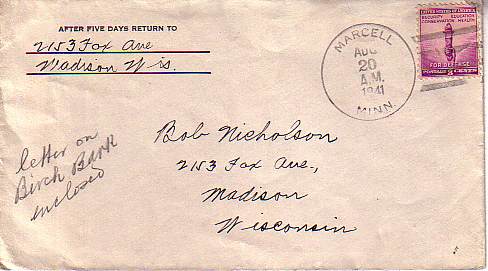 AFTER FIVE DAYS RETURN TO
2153 Fox Ave
Madison Wis.
MARCELL
AUG
20
A.M.
1941
MINN.
UNITED STATES OF AMERICA
SECURITY EDUCATION
CONSERVATION HEALTH
FOR DEFENSE
POSTAGE 3 CENTS
letter on
Birch Bark
enclosed
Bob Nicholson
2153 Fox Ave.,
Madison
Wisconsin